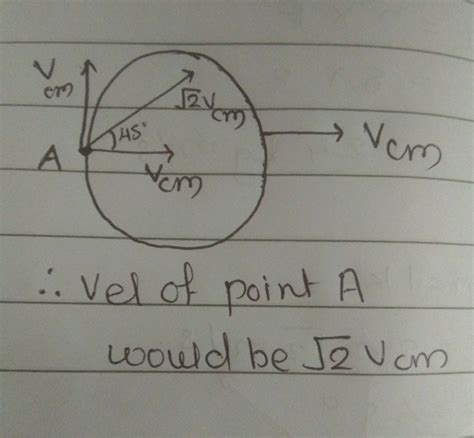 Vcm
√2Vcm
45°
A
Vcm
Vcm
∴ Vel of point A
would be √2 Vcm